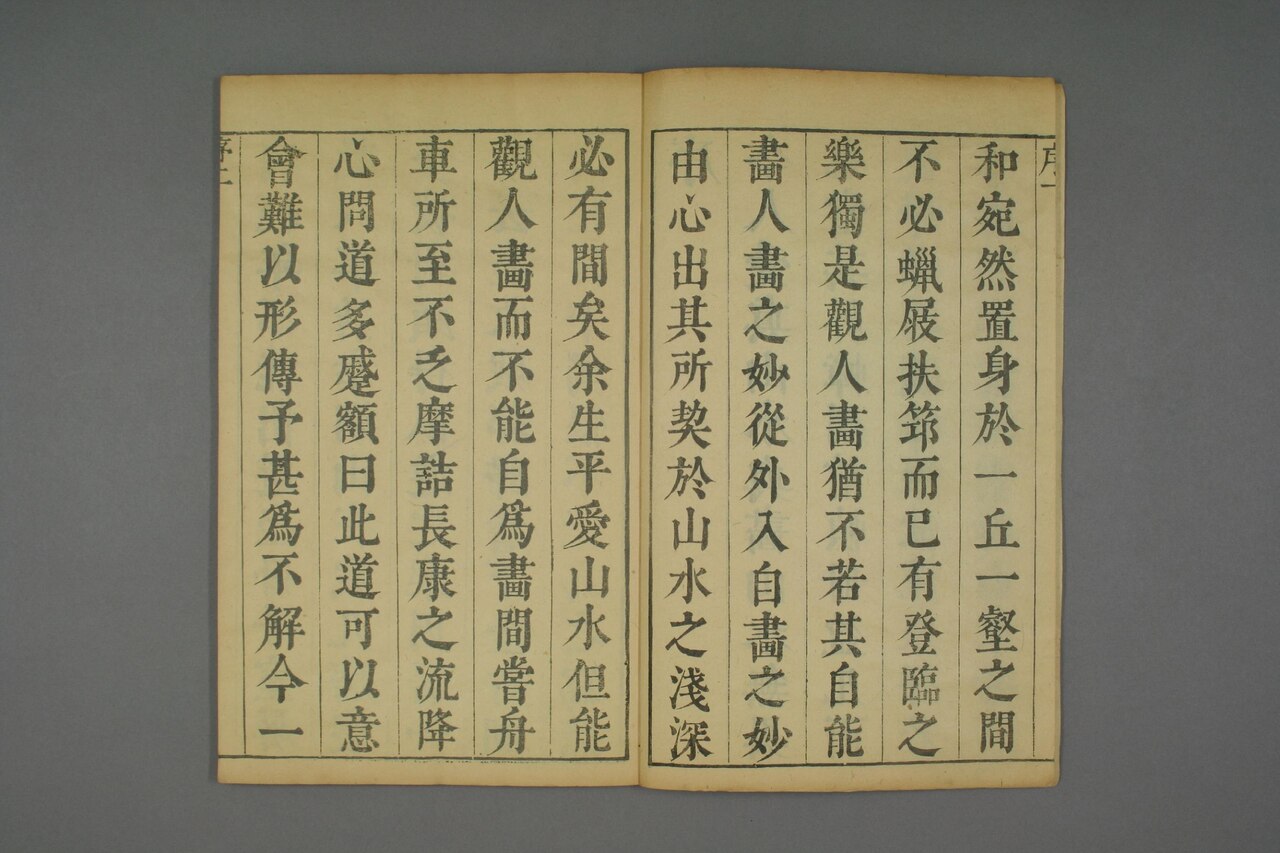 序一
和宛然置身於一丘一壑之間
不必蠟屐扶筇而已有登臨之
樂獨是觀人畵猶不若其自能
畵人畵之妙從外入自畵之妙
由心出其所契於山水之淺深
必有間矣余生平愛山水但能
觀人畵而不能自爲畵間嘗舟
車所至不乏摩詰長康之流降
心問道多蹙額曰此道可以意
會難以形傳予甚爲不解今一
序二